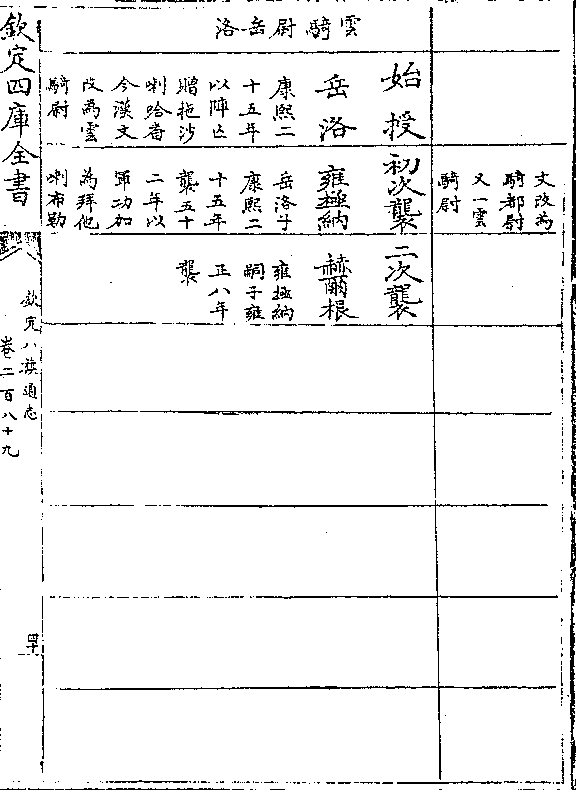 文改為
騎都尉
又一雲
騎尉
雲騎尉岳洛
始授
岳洛
康熙二
十五年
以陣亡
贈拖沙
喇哈番
今漢文
改為雲
騎尉
初次襲
雍極納
岳洛子
康熙二
十五年
襲五十
二年以
軍功加
為拜他
喇布勒
二次襲
赫爾根
雍極納
嗣子雍
正八年
襲
欽定四庫全書
欽定八旗通志
卷二百八十九
四十